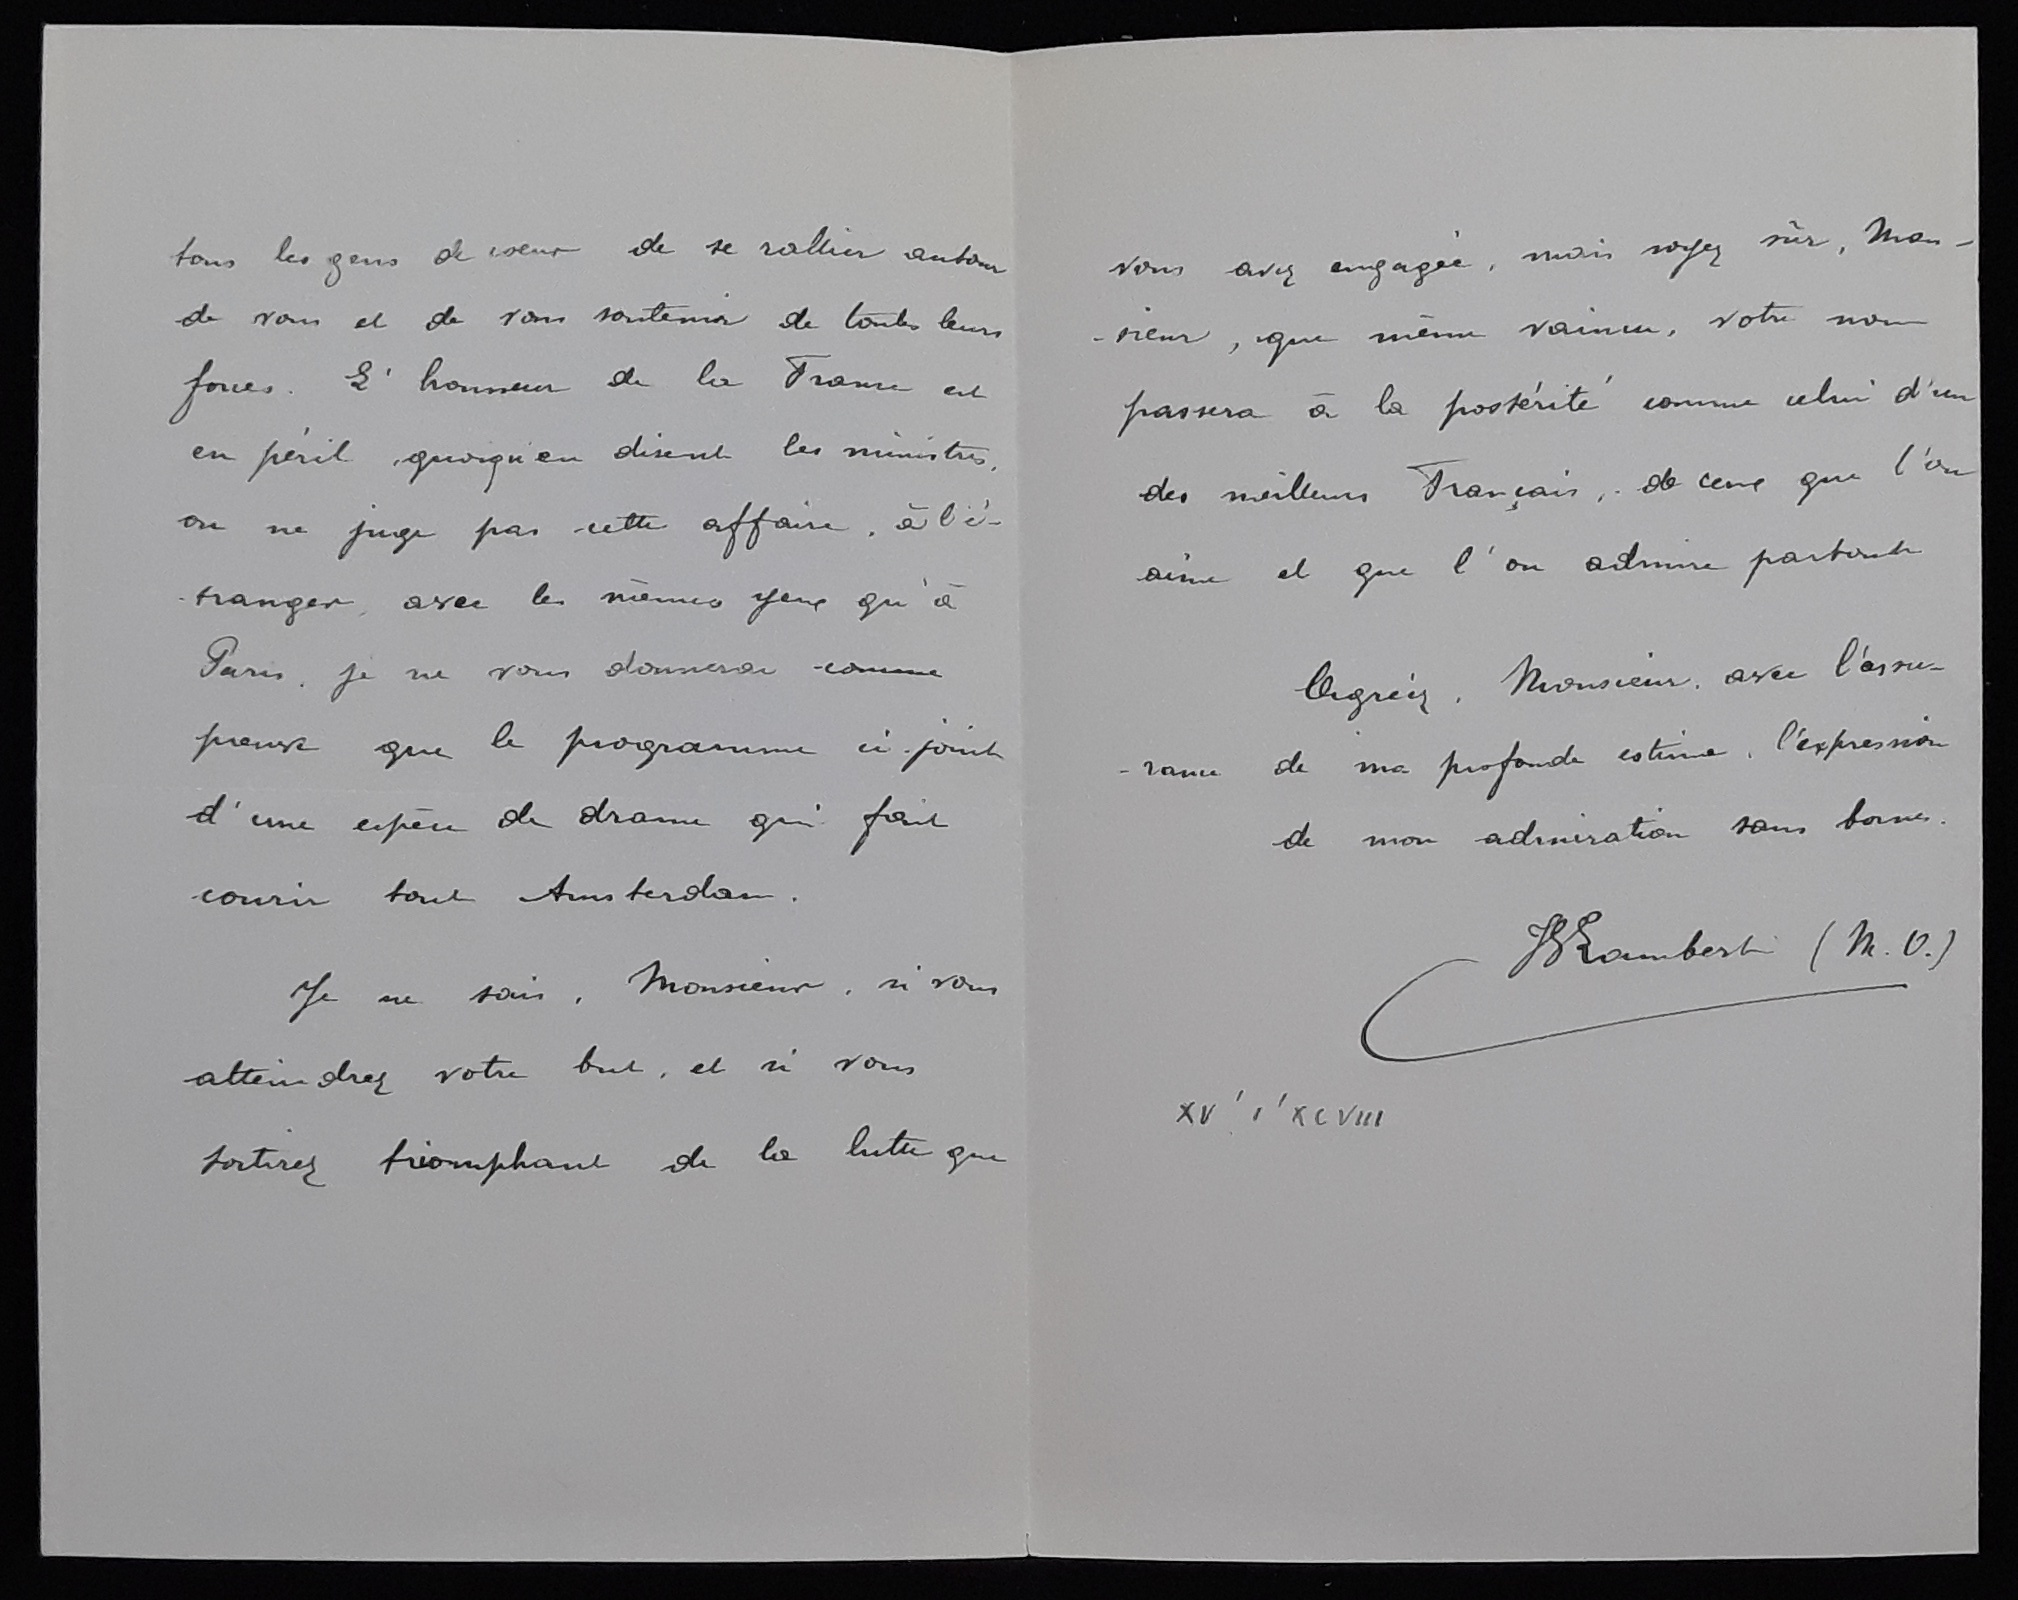 tous les gens de cœur de se rallier autour
de vous et de vous soutenir de toutes leurs
forces. L'honneur de la France est
en péril, quoiqu'en disent les ministres,
on ne juge pas cette affaire, à l'é-
-tranger, avec les mêmes yeux qu'à
Paris. je ne vous donnerai comme
preuve que le programme ci-joint
d'une espèce de drame qui fait
courir tout Amsterdam.
Je ne sais, Monsieur, si vous
atteindrez votre but, et si vous
sortirez triomphant de la lutte que
vous avez engagée, mais soyez sûr, Mon-
-sieur, que même vaincu, votre nom
passera à la postérité comme celui d'un
des meilleurs Français, de ceux que l'on
aime et que l'on admire partout
Agréez, Monsieur, avec l'assu-
-rance de ma profonde estime, l'expression
de mon admiration sans bornes.
Lambert (M.O.)
XV'I'XCVIII